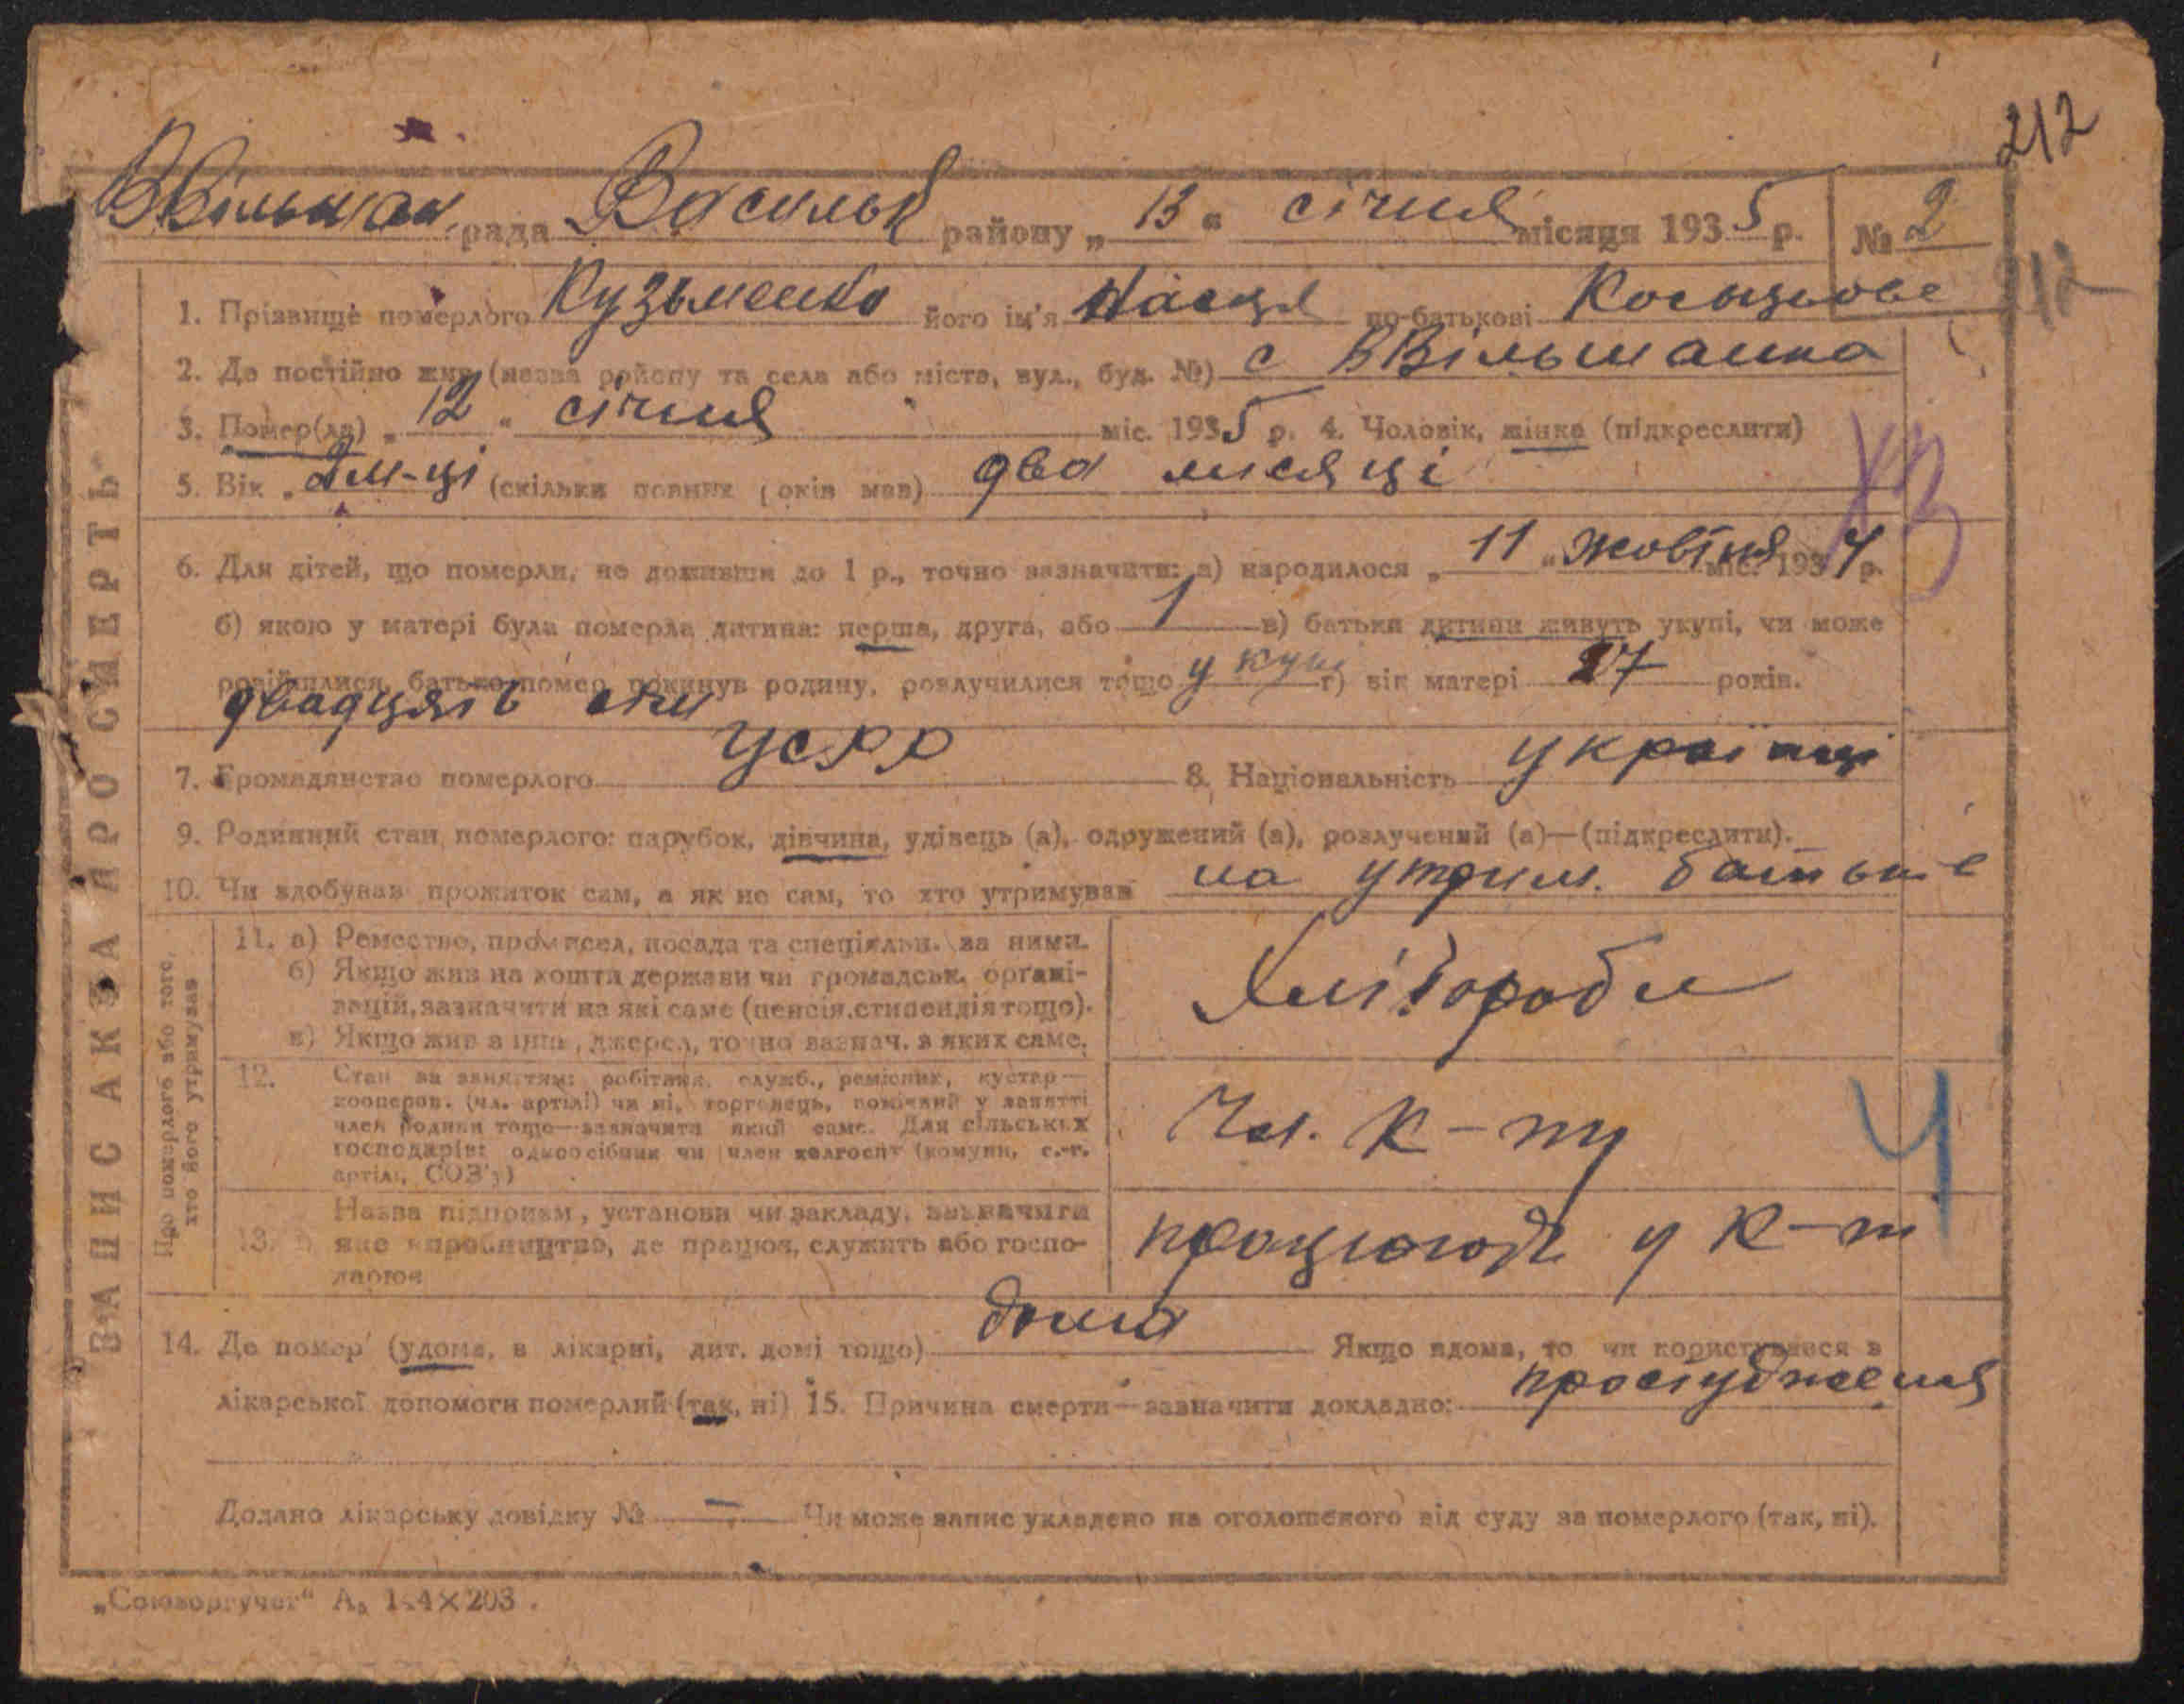 212
ВВільшан. рада Васильк району „ 13 " січня місяця 1935 р. № 2
212
1. Прізвище померлого Кузьменко його ім'я Настя по-батькові
2. Де постійно жив (назва району та села або місто, вул., буд. №) с ВВільшанка
3. Помер(ла) „ 12 " січня міс. 1935 р. 4. Чоловік, жінка (підкреслити)
5. Вік „ 2 м-ці (скільки повних років мав) два місяці
6. Для дітей, що померли, не доживши до 1 р., точно зазначити: а) народилося „ 11 " жовтня міс. 1934 р.
б) якою у матері була померла дитина: перша, друга, або 1 в) батьки дитини живуть укупі, чи може
розійшлися, батько помер, покинув родину, розлучилися тощо укупі г) вік матері 27 років.
двадцять сім
7. Громадянство померлого УСРР 8. Національність українці
9. Родинний стан померлого: парубок, дівчина, удівець (а), одружений (а), розлучений (а)—(підкреслити).
10. Чи здобував прожиток сам, а як не сам, то хто утримував на утрим. батьків
ЗАПИС АКЗА ПРО СМЕРТЬ
Про померлого або того, хто його утримував
11. а) Ремество, промисел, посада та спеціяльн. за ними.
б) Якщо жив на кошти держави чи громадськ. органі-
зацій, зазначити на які саме (пенсія, стипендія тощо).
в) Якщо жив з інш. джерел, точно зазнач. з яких саме.
Хлібороби
12. Стан за заняттям: робітник, служб., ремісник, кустар—
кооперов. (чл. артілі) чи ні, торговець, помічний у занятті
член родини тощо—зазначити який саме. Для сільських
господарів: одноосібник чи член колгоспу (комуни, с.-г.
артілі, СОЗ'у)
Чл. к-ту
Ч
13. Назва підприєм., установи чи закладу, зазначити
яке виробництво, де працює, служить або госпо-
дарює
працюють у к-ті
14. Де помер (удома, в лікарні, дит. домі тощо) дома Якщо вдома, то чи користувався з
лікарської допомоги померлий (так, ні) 15. Причина смерти—зазначити докладно: простудження
Додано лікарську довідку № — Чи може запис укладено на оголошеного від суду за померлого (так, ні).
„Союзоргучет" А₅ 144×203.